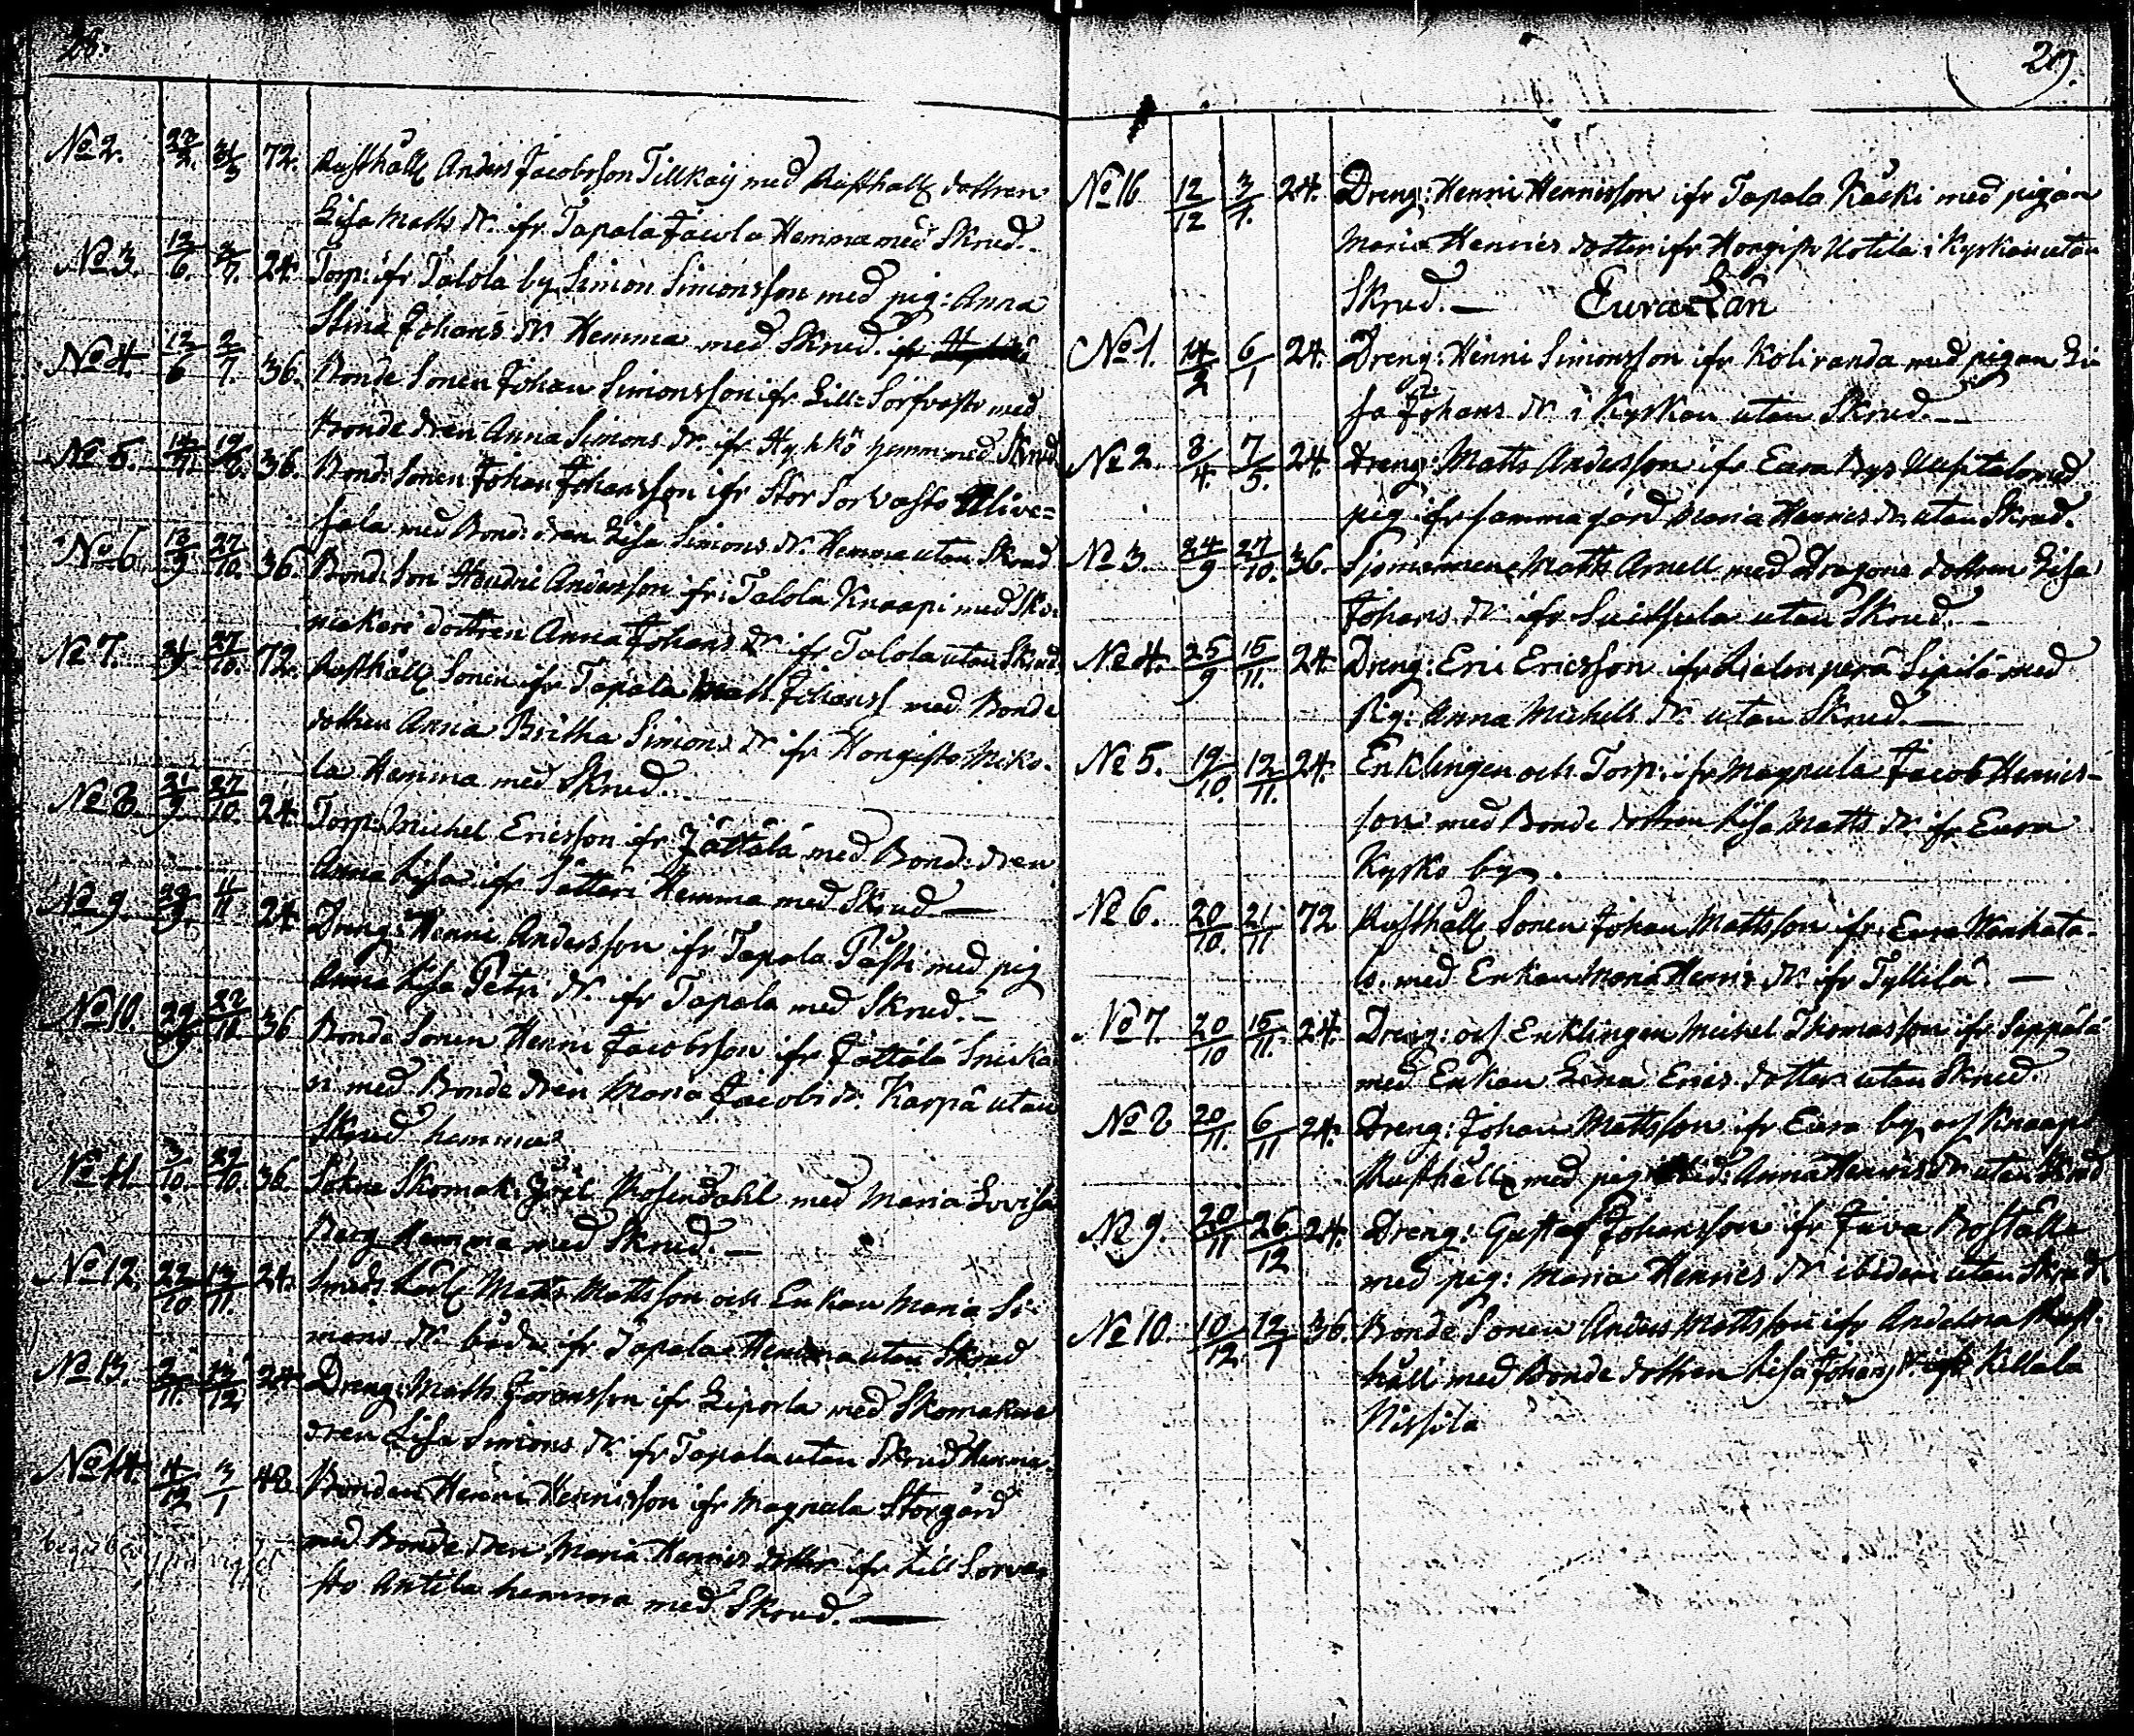 28.
No 2. 22/2. 31/3 72. Rusthåll Anders Jacobsson Tillkaij med Rusthåll dottren
Lisa Matts dr. ifr Tapala Jaula Hemma med Skrud.
No 3. 12/6. 2/7. 24. Torp: ifr Talola by Simon Simonsson med pig: Anna
Stina Johans dr. Hemma med Skrud. ifr
No 4. 12/6 2/7. 36. Bonde Sonen Johan Simonsson ifr Lill Sorfvasto med
Bonde dren Anna Simons dr. ifr Hyhkö hemm med Skrud
No 5. 36. Bond: Sonen Johan Johansson ifr Stor Sorvasto Alive=
sala med Bond: dren Lisa Simons dr. Hemma utan Skrud
No 6. 27/10. 36. Bond: Son Hendric Andersson ifr Talola Knaapi med Sko-
makare dottren Anna Johans dr ifr Talola utan Skrud
No 7. 27/10. 72. Rusthåll Sonen ifr Tapala Matts Johanss med Bonde
dottren Anna Britha Simons dr ifr Hongisto Miko-
la Hemma med Skrud.
No 8. 21/9. 27/10. 24. Torp: Michel Ericsson ifr Jättälä med Bond: dren
Anna Lisa ifr Sätteri Hemma med Skrud. —
No 9. 29/9. 4/11 24. Dreng: Henric Andersson ifr Tapala Påsti med pig
Anna Lisa Petri dr. ifr Tapala med Skrud. —
No 10. 29/9 22/11. 36 Bonde Sonen Henric Jacobsson ifr Jättälä Snicka
ri med Bonde dren Maria Jacobs dr. Karpå utan
Skrud hemma
No 11. 3/10. 29/10. 36 Sokne Skomak: Joël Rosendahl med Maria Lovisa
Berg Hemma med Skrud. —
No 12. 22/10 13/11. 24. Smeds Karl Matts Mattsson och Enkan Maria Si-
mons dr. både ifr Tapala Hemma utan Skrud
No 13. 2/11. 13/12 24. Dreng: Matts Göransson ifr Leporla med Skomakare
dren Lisa Simons dr. ifr Tapala utan Skrud Hemma.
No 14. 4/12 3/1 48. Bonden Henric Henricsson ifr Magnula Storgård
med Bonde dren Maria Henrics dotter ifr Lill Sorva-
sto Antila hemma med Skrud. —
29.
No 16 12/12 3/1. 24. Dreng: Henric Henricsson ifr Tapala Käcki med pigan
Maria Henrics dotter ifr Hongisto Uotila i Kyrkan utan
Skrud. — Eura Län
No 1. 14/2 6/1 24. Dreng: Henric Simonsson ifr Koliranda med pigan Li-
sa Johans dr i Kyrkan utan Skrud. —
No 2. 8/4. 7/5. 24. Dreng: Matts Andersson ifr Eura Bys Uusitalo med
pig ifr samma gård Maria Henrics dr. utan Skrud.
No 3. 24/9 27/10. 36. Sjömannen Matts Arnell med Dragone dottren Lisa
Johans dr. ifr Luissula utan Skrud. —
No 4. 25/9 15/11. 24. Dreng: Eric Ericsson ifr Lialenperä Sipilä med
Pig: Anna Michels dr. utan Skrud. —
No 5. 19/10. 12/11. 24. Enklingen och Torp: ifr Magnula Jacob Henrics-
son med Bonde dottren Lisa Matts dr. ifr Eura
Kyrko by.
No 6. 20/10. 21/11 72 Rusthåll Sonen Johan Mattsson ifr Eura Wanhata-
lo med Enkan Maria Henrics dr. ifr Tyllilä. —
No 7. 20/10 15/11. 24. Dreng: och Enklingen Michel Thomasson ifr Seppälä
med Enkan Lena Erics dotter utan Skrud.
No 8 20/11. 6/11 24. Dreng: Johan Mattsson ifr Eura by och Knaapi
Rusthåll med pig: ibid: Anna Henrics dr utan Skrud
No 9. 20/11 26/12 24. Dreng: Gustaf Johansson ifr Juva Boställe
med pig: Maria Henrics dr ibidem utan Skrud.
No 10. 10/12 12/1 36. Bonde Sonen Anders Mattsson ifr Andelma Rust-
håll med Bonde dottren Lisa Johans dr. ifr Killala
Nissilä